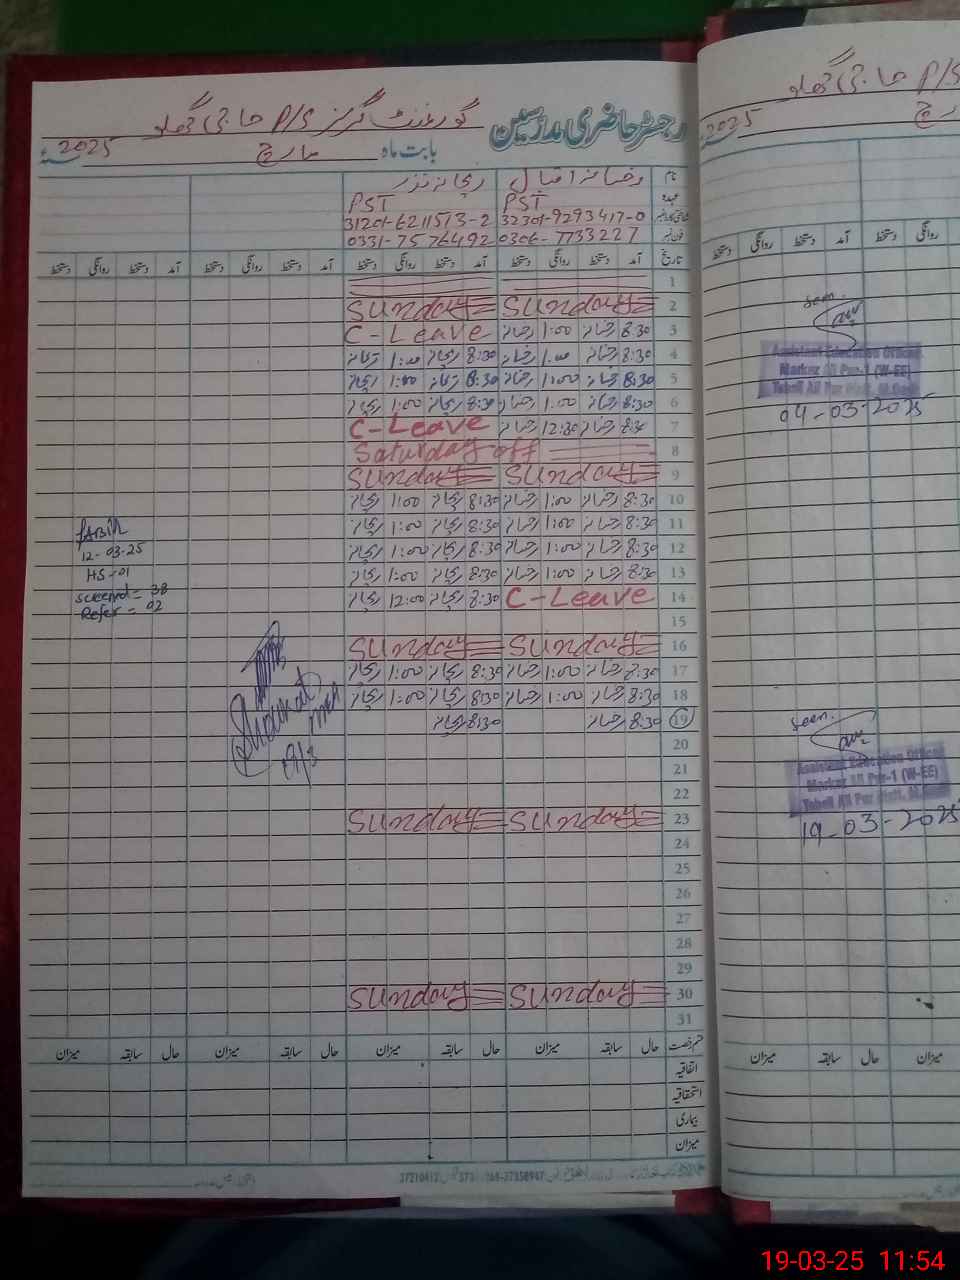 گورنمنٹ گرلز P/S حاجی گھلو رجسٹر حاضری مدرسین
2025 مارچ بابت ماہ
نام رخسانہ اقبال ریحانہ نذر
عہدہ PST PST
32301-9293417-0 31201-6211573-2
فون نمبر 0306-7733227 0331-7576492
تاریخ آمد دستخط روانگی دستخط آمد دستخط روانگی دستخط آمد دستخط روانگی دستخط آمد دستخط روانگی دستخط
1
2 Sunday Sunday
3 8:30 رخسانہ 1:00 رخسانہ C-Leave
4 8:30 رخسانہ 1:00 رخسانہ 8:30 ریحانہ 1:00 ریحانہ
5 8:30 رخسانہ 1:00 رخسانہ 8:30 ریحانہ 1:00 ریحانہ
6 8:30 رخسانہ 1:00 رخسانہ 8:30 ریحانہ 1:00 ریحانہ
7 8:30 رخسانہ 12:30 رخسانہ C-Leave
8 Saturday off
9 Sunday Sunday
10 8:30 رخسانہ 1:00 رخسانہ 8:30 ریحانہ 1:00 ریحانہ
11 8:30 رخسانہ 1:00 رخسانہ 8:30 ریحانہ 1:00 ریحانہ
12 8:30 رخسانہ 1:00 رخسانہ 8:30 ریحانہ 1:00 ریحانہ
13 8:30 رخسانہ 1:00 رخسانہ 8:30 ریحانہ 1:00 ریحانہ
14 C-Leave 8:30 ریحانہ 12:00 ریحانہ
15
16 Sunday Sunday
17 8:30 رخسانہ 1:00 رخسانہ 8:30 ریحانہ 1:00 ریحانہ
18 8:30 رخسانہ 1:00 رخسانہ 8:30 ریحانہ 1:00 ریحانہ
19 8:30 رخسانہ 8:30 ریحانہ
20
21
22
23 Sunday Sunday
24
25
26
27
28
29
30 Sunday Sunday
31
حال سابقہ میزان حال سابقہ میزان حال سابقہ میزان حال سابقہ میزان
اتفاقیہ
استحقاقیہ
بیماری
میزان
12-03-25
HS-01
Screened = 38
Refer = 02
Shoukat
MEA
19/3
P/S حاجی گھلو
2025
آمد دستخط روانگی دستخط
Seen.
Assistant Education Officer
Markaz Ali Pur-1 (W-EE)
Tehsil Ali Pur Distt. M.Garh
04-03-2025
Seen.
Assistant Education Officer
Markaz Ali Pur-1 (W-EE)
Tehsil Ali Pur Distt. M.Garh
19-03-2025
حال سابقہ میزان
میزان
19-03-25 11:54